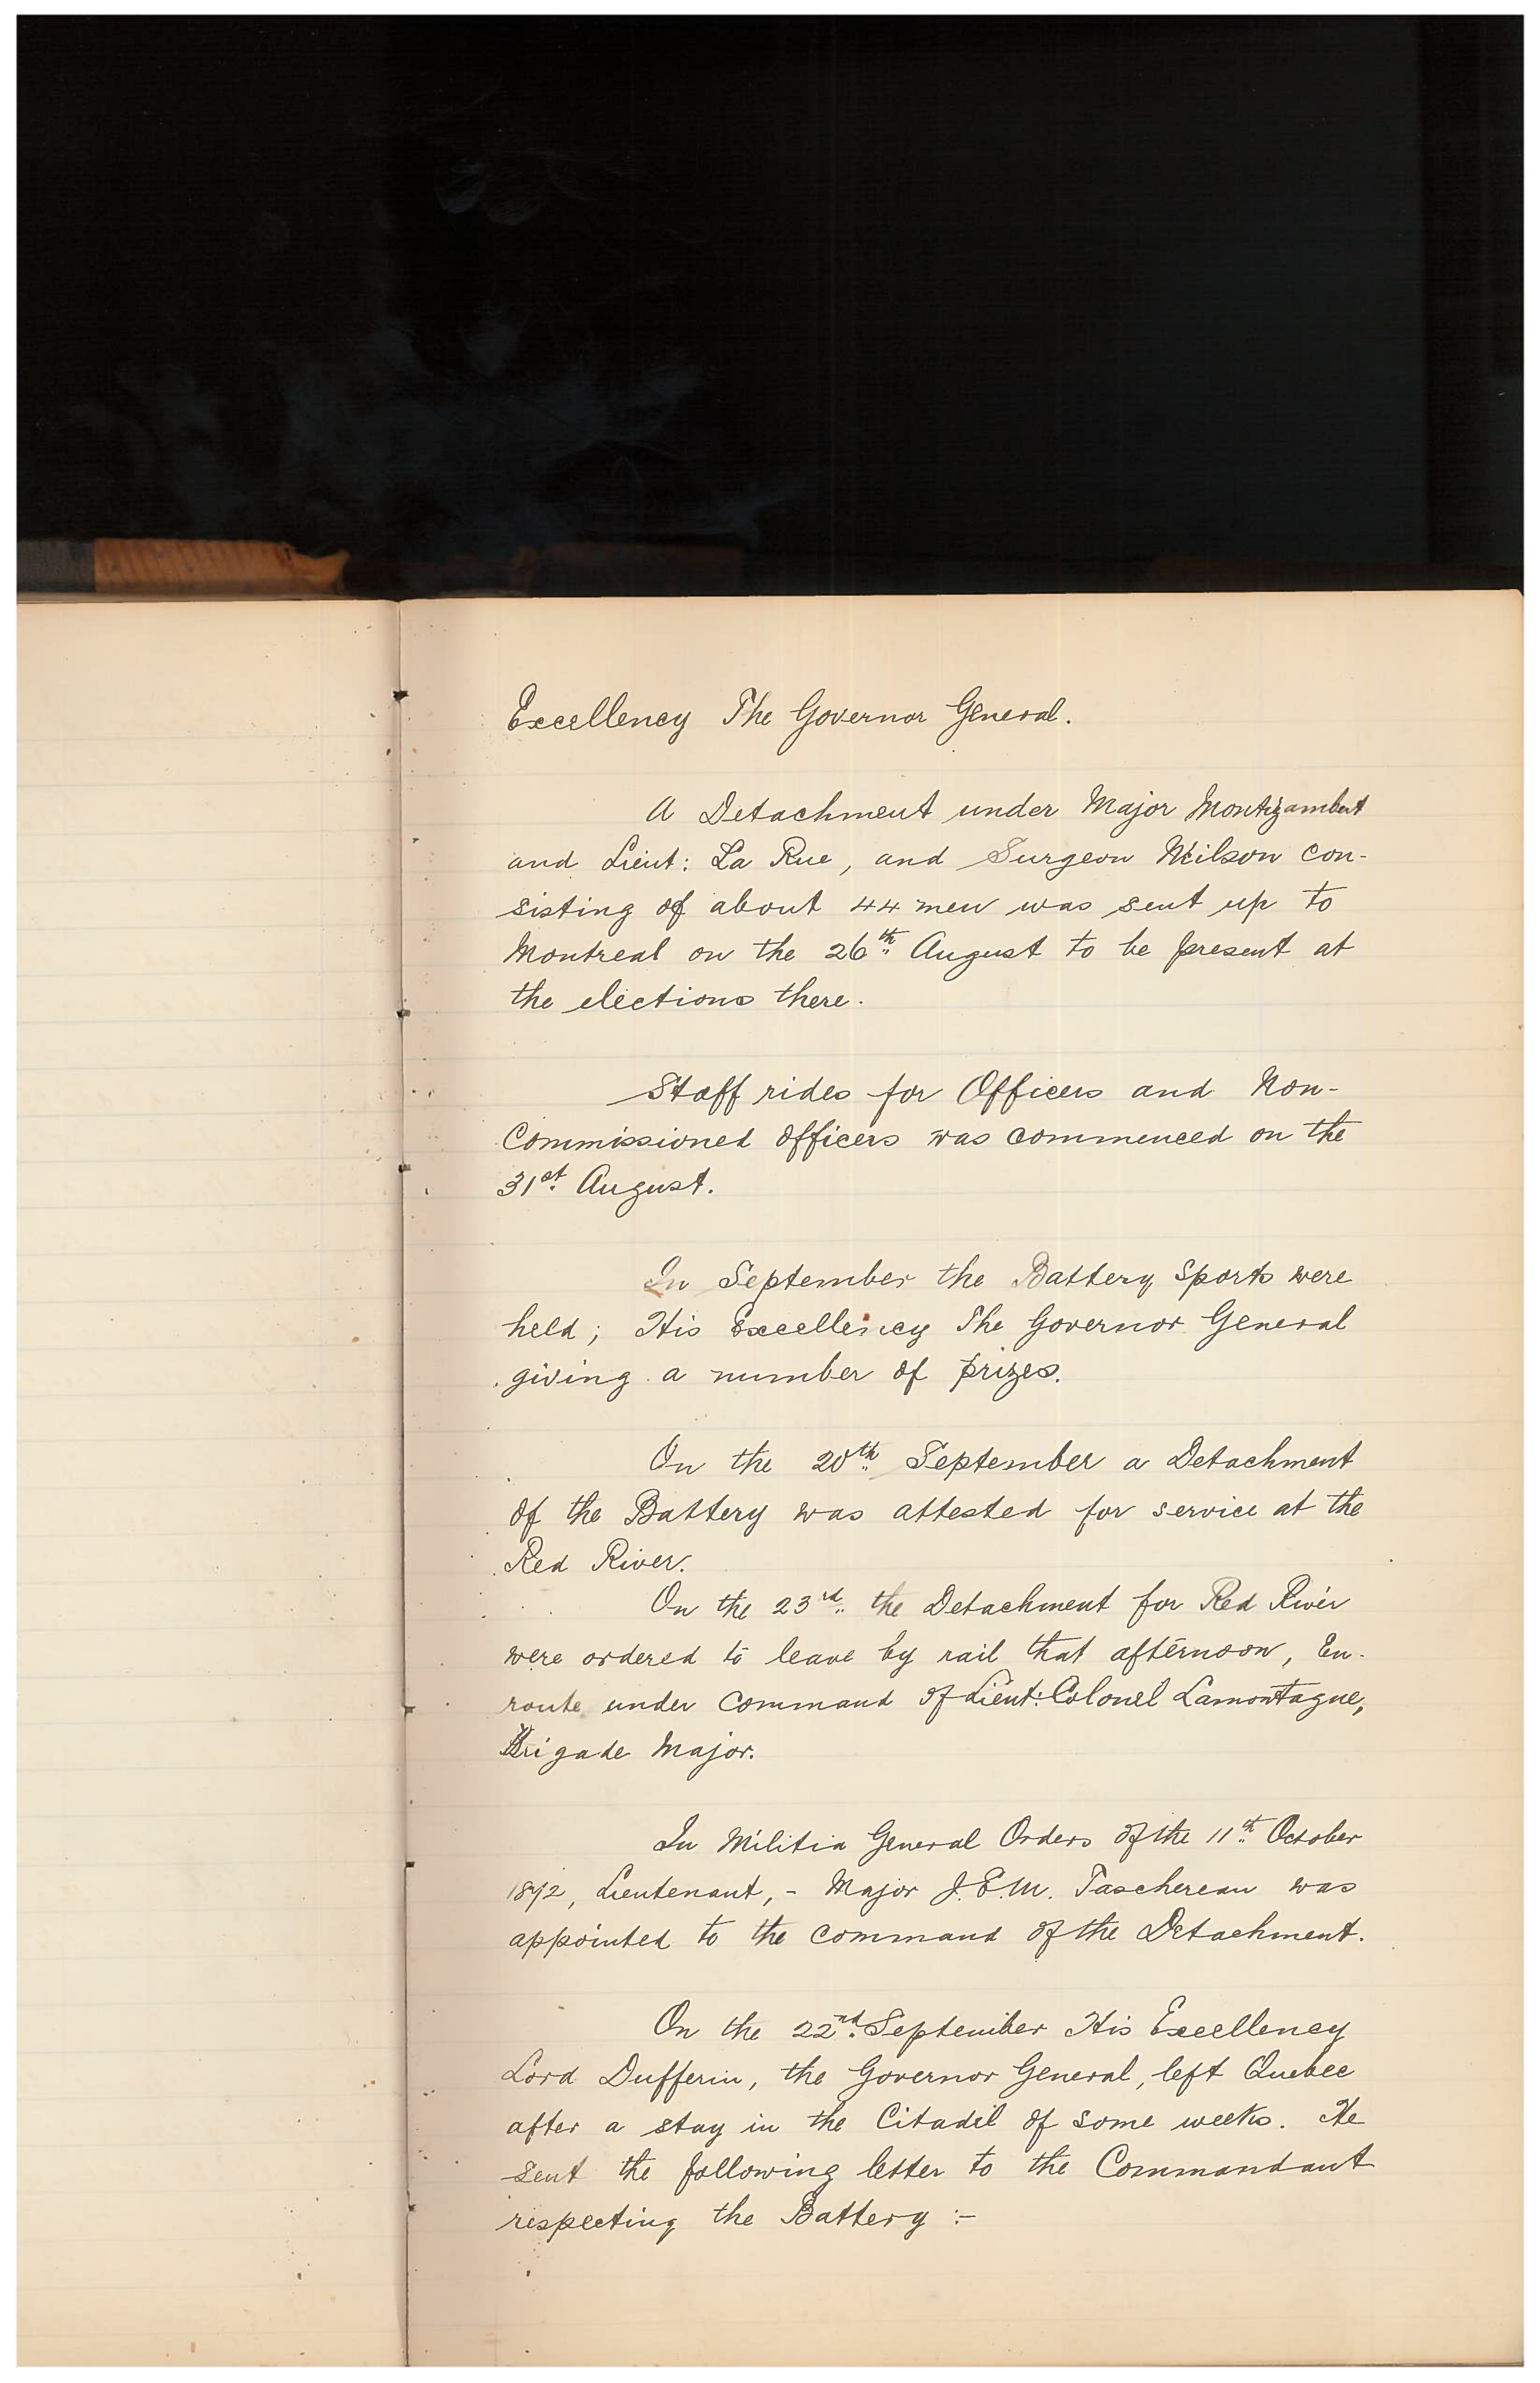 Excellency The Governor General.
A Detachment under Major Montizambert
and Lieut: La Rue, and Surgeon Neilson con-
sisting of about 44 men was sent up to
Montreal on the 26th August to be present at
the elections there.
Staff rides for Officers and Non-
Commissioned Officers was commenced on the
31st August.
In September the Battery Sports were
held; His Excellency The Governor General
giving a number of prizes.
On the 20th September a Detachment
of the Battery was attested for service at the
Red River.
On the 23rd the Detachment for Red River
were ordered to leave by rail that afternoon, En-
route under command of Lieut: Colonel Lamontagne,
Brigade Major.
In Militia General Orders of the 11th October
1872, Lieutenant, - Major J.E.M. Taschereau was
appointed to the command of the Detachment.
On the 22nd September His Excellency
Lord Dufferin, the Governor General, left Quebec
after a stay in the Citadel of some weeks. He
sent the following letter to the Commandant
respecting the Battery :-